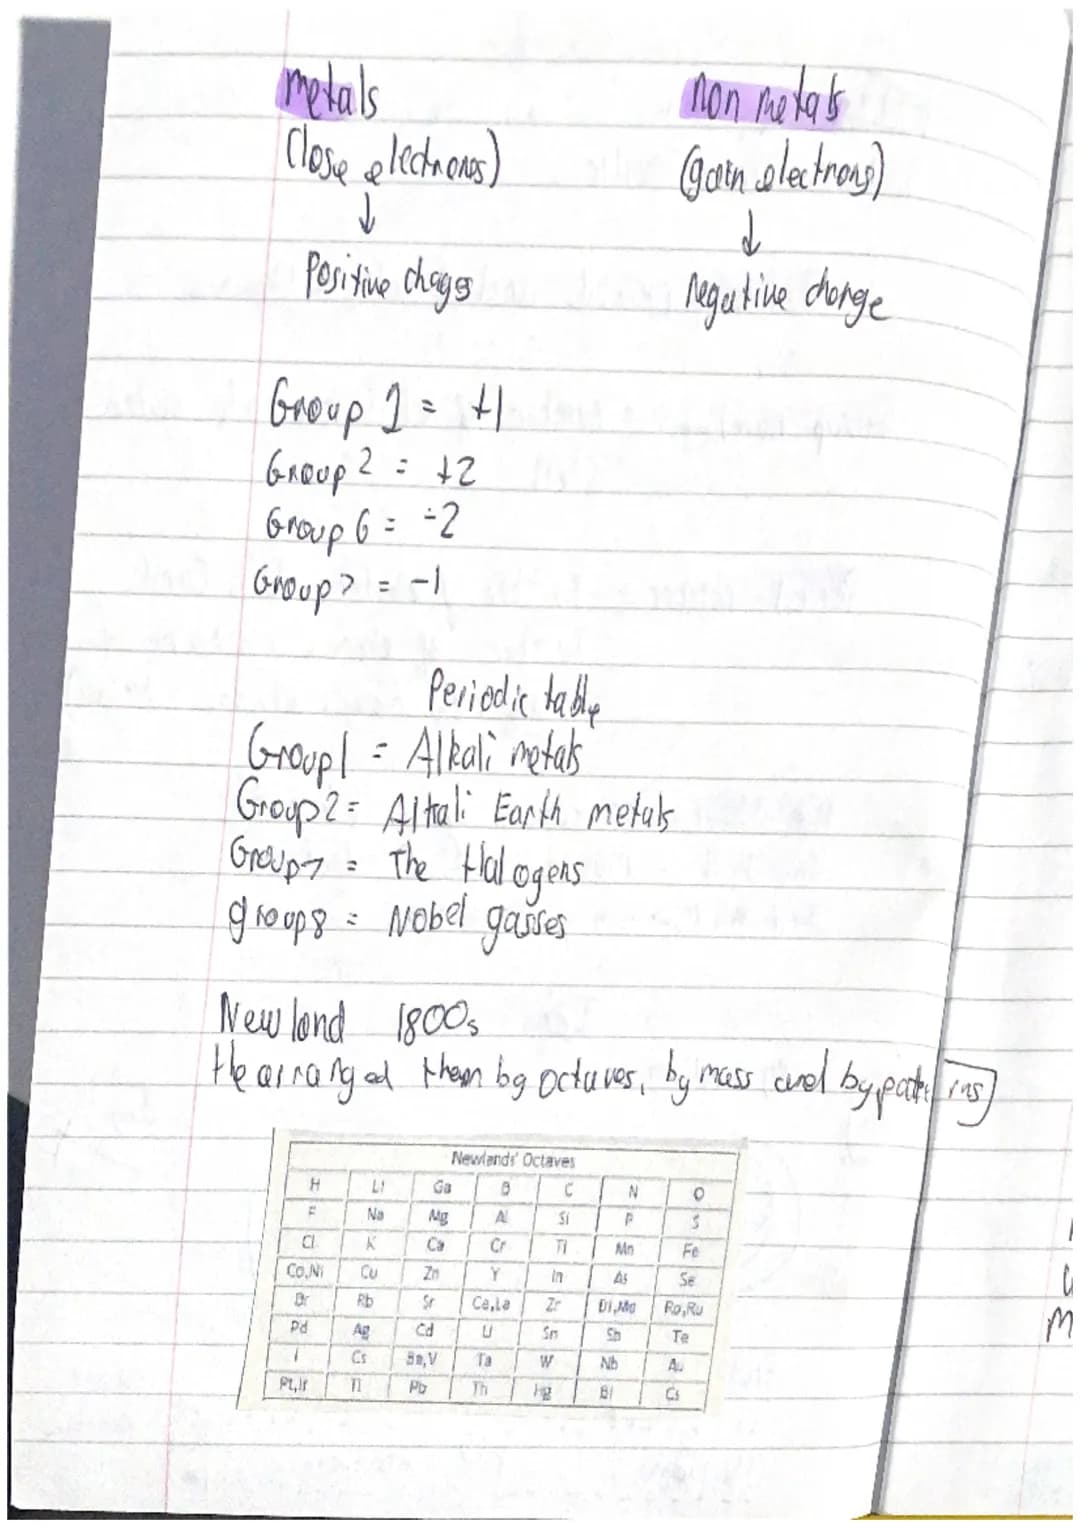 metals non metals
(lose electrones) (gain electrons)
↓ ↓
Positive chages negative charge
Group 1 = +1
Group 2 = +2
Group 6 = -2
Group 7 = -1
Periodic table
Group 1 = Alkali metals
Group 2 = Alkali Earth metals
Group 7 = The Halogens
group 8 = Nobel gasses
Newland 1800s
He arranged them by octaves, by mass and by patterns
Newlands' Octaves
H Li Ga B C N O
F Na Mg Al Si P S
Cl K Ca Cr Ti Mn Fe
Co,Ni Cu Zn Y In As Se
Br Rb Sr Ce,La Zr Di,Mo Ro,Ru
Pd Ag Cd U Sn Sb Te
I Cs Ba,V Ta W Nb Au
Pt,Ir Tl Pb Th Hg Bi Cs